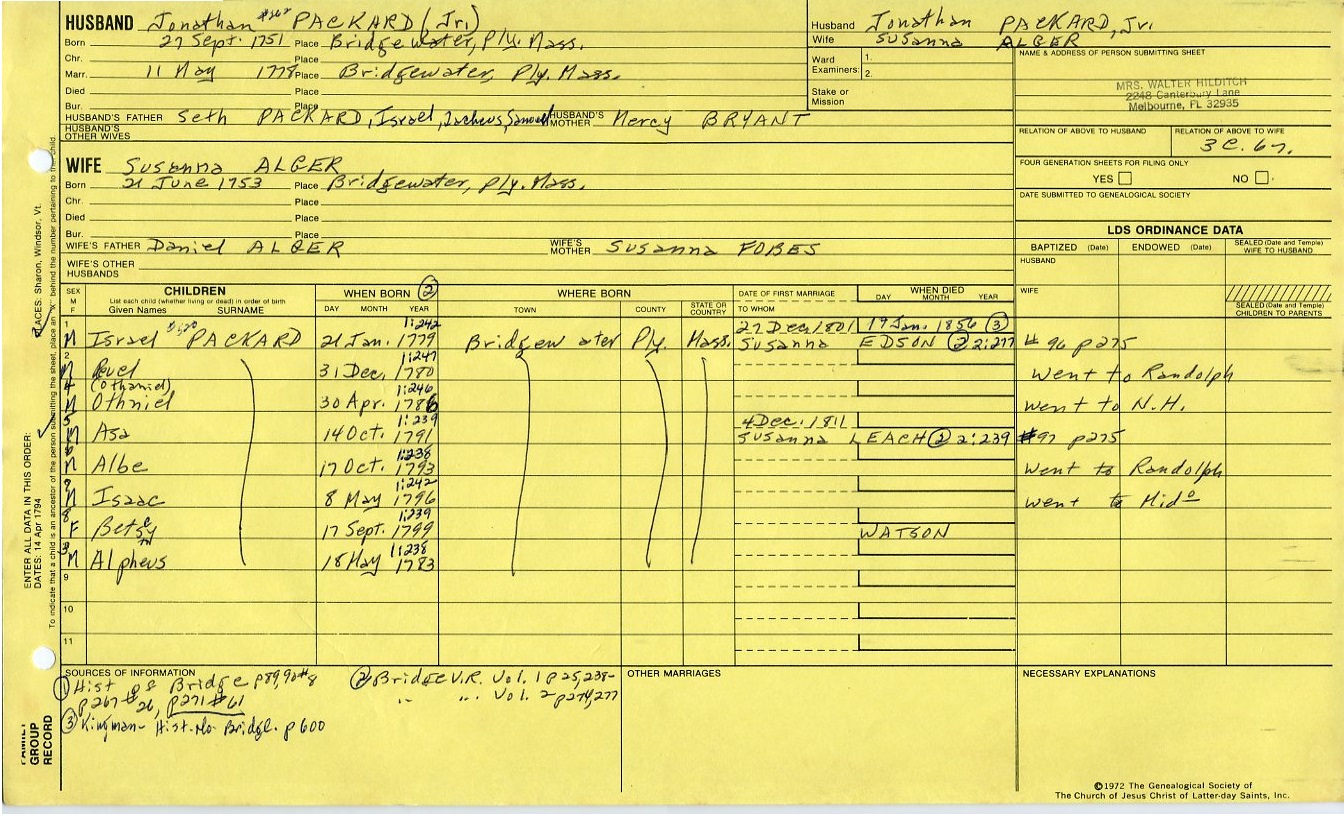 HUSBAND Jonathan #262 PACKARD (Jr.)
Born 27 Sept. 1751 Place Bridgewater, Ply. Mass.
Chr. Place
Marr. 11 May 1778 Place Bridgewater, Ply. Mass.
Died Place
Bur. Place
HUSBAND'S FATHER Seth PACKARD, Israel, Zacheus, Samuel HUSBAND'S MOTHER Mercy BRYANT
HUSBAND'S OTHER WIVES
Husband Jonathan PACKARD, Jr.
Wife Susanna ALGER
Ward Examiners: 1. 2.
Stake or Mission
NAME & ADDRESS OF PERSON SUBMITTING SHEET
MRS. WALTER HILDITCH
2248 Canterbury Lane
Melbourne, FL 32935
RELATION OF ABOVE TO HUSBAND RELATION OF ABOVE TO WIFE
3 C. 6 r.
FOUR GENERATION SHEETS FOR FILING ONLY
YES NO
DATE SUBMITTED TO GENEALOGICAL SOCIETY
WIFE Susanna ALGER
Born 21 June 1753 Place Bridgewater, Ply. Mass.
Chr. Place
Died Place
Bur. Place
WIFE'S FATHER Daniel ALGER WIFE'S MOTHER Susanna FOBES
WIFE'S OTHER HUSBANDS
LDS ORDINANCE DATA
BAPTIZED (Date) ENDOWED (Date) SEALED (Date and Temple) WIFE TO HUSBAND
HUSBAND
WIFE
SEALED (Date and Temple) CHILDREN TO PARENTS
SEX M F CHILDREN WHEN BORN (2) WHERE BORN DATE OF FIRST MARRIAGE WHEN DIED
List each child (whether living or dead) in order of birth
Given Names SURNAME DAY MONTH YEAR TOWN COUNTY STATE OR COUNTRY TO WHOM DAY MONTH YEAR
1 #620 1:242 27 Dec 1801 19 Jan. 1856 (3)
M Israel PACKARD 21 Jan. 1779 Bridgewater Ply. Mass. Susanna EDSON (2) 2:277 # 96 p275
2 1:247
M Ruel 31 Dec. 1780 went to Randolph
4 (Othaniel) 1:246
M Othniel 30 Apr. 1786 went to N.H.
5 1:239 4 Dec. 1811
M Asa 14 Oct. 1791 Susanna LEACH (2) 2:239 #97 p275
6 1:238
M Albe 17 Oct. 1793 went to Randolph
7 1:242
M Isaac 8 May 1796 went to Mido
8 1:239
F Betsey 17 Sept. 1799 WATSON
3 1:238
M Alpheus 18 May 1783
9
10
11
SOURCES OF INFORMATION
(1) Hist of Bridge p89,90#8
p267 #26, p271 #61
(3) Kingman- Hist. No. Bridge. p 600
(2) Bridge V.R. Vol. 1 p25,238-
" " Vol. 2 p274,277
OTHER MARRIAGES
NECESSARY EXPLANATIONS
©1972 The Genealogical Society of
The Church of Jesus Christ of Latter-day Saints, Inc.
FAMILY GROUP RECORD
ENTER ALL DATA IN THIS ORDER:
DATES: 14 Apr 1794
PLACES: Sharon, Windsor, Vt.
To indicate that a child is an ancestor of the person submitting the sheet, place an "X" behind the number pertaining to the child.